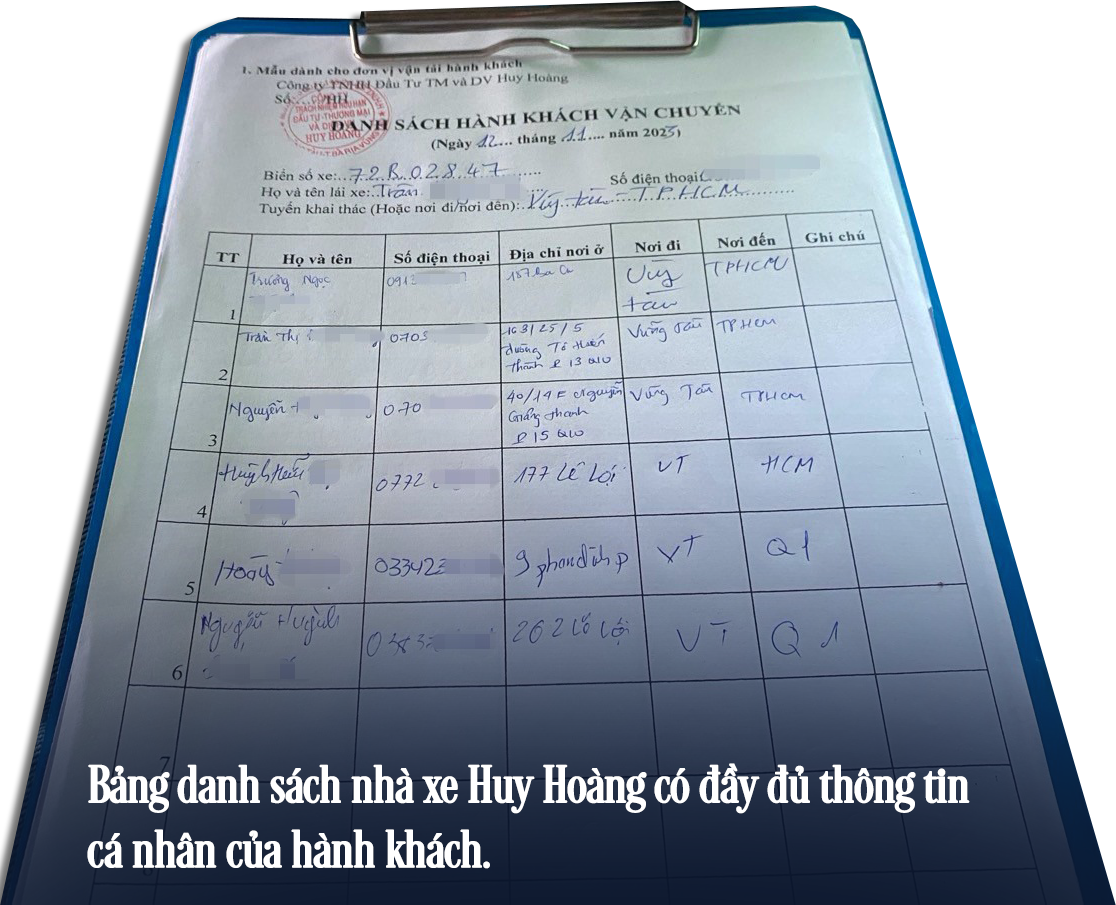 1. Mẫu dành cho đơn vị vận tải hành khách
Công ty TNHH Đầu Tư TM và DV Huy Hoàng
Số:..../HH
TRÁCH NHIỆM HỮU HẠN
ĐẦU TƯ-THƯƠNG MẠI
VÀ DỊCH VỤ
HUY HOÀNG
DANH SÁCH HÀNH KHÁCH VẬN CHUYỂN
(Ngày 12... tháng 11.... năm 2025)
Biển số xe:..72B.028.47
Số điện thoại:
Họ và tên lái xe: Trần
Tuyến khai thác (Hoặc nơi đi/nơi đến): Vũng tàu - TPHCM
TT Họ và tên Số điện thoại Địa chỉ nơi ở Nơi đi Nơi đến Ghi chú
1 Trương Ngọc 091 Vũng tàu TPHCM
2 Trần Thị 0705 163/25/5 đường Tô Hiến thành P 13 Q10 Vũng Tàu TPHCM
3 Nguyễn 070 40/14E Nguyễn Giảng thanh P 15 Q10 Vũng Tàu TPHCM
4 Huỳnh 0772 177 Lê Lợi VT HCM
5 Hoàng 033423 9 phan đình p VT Q1
6 Nguyễn Huỳnh 0383 262 Lê Lợi VT Q1
7
Bảng danh sách nhà xe Huy Hoàng có đầy đủ thông tin
cá nhân của hành khách.